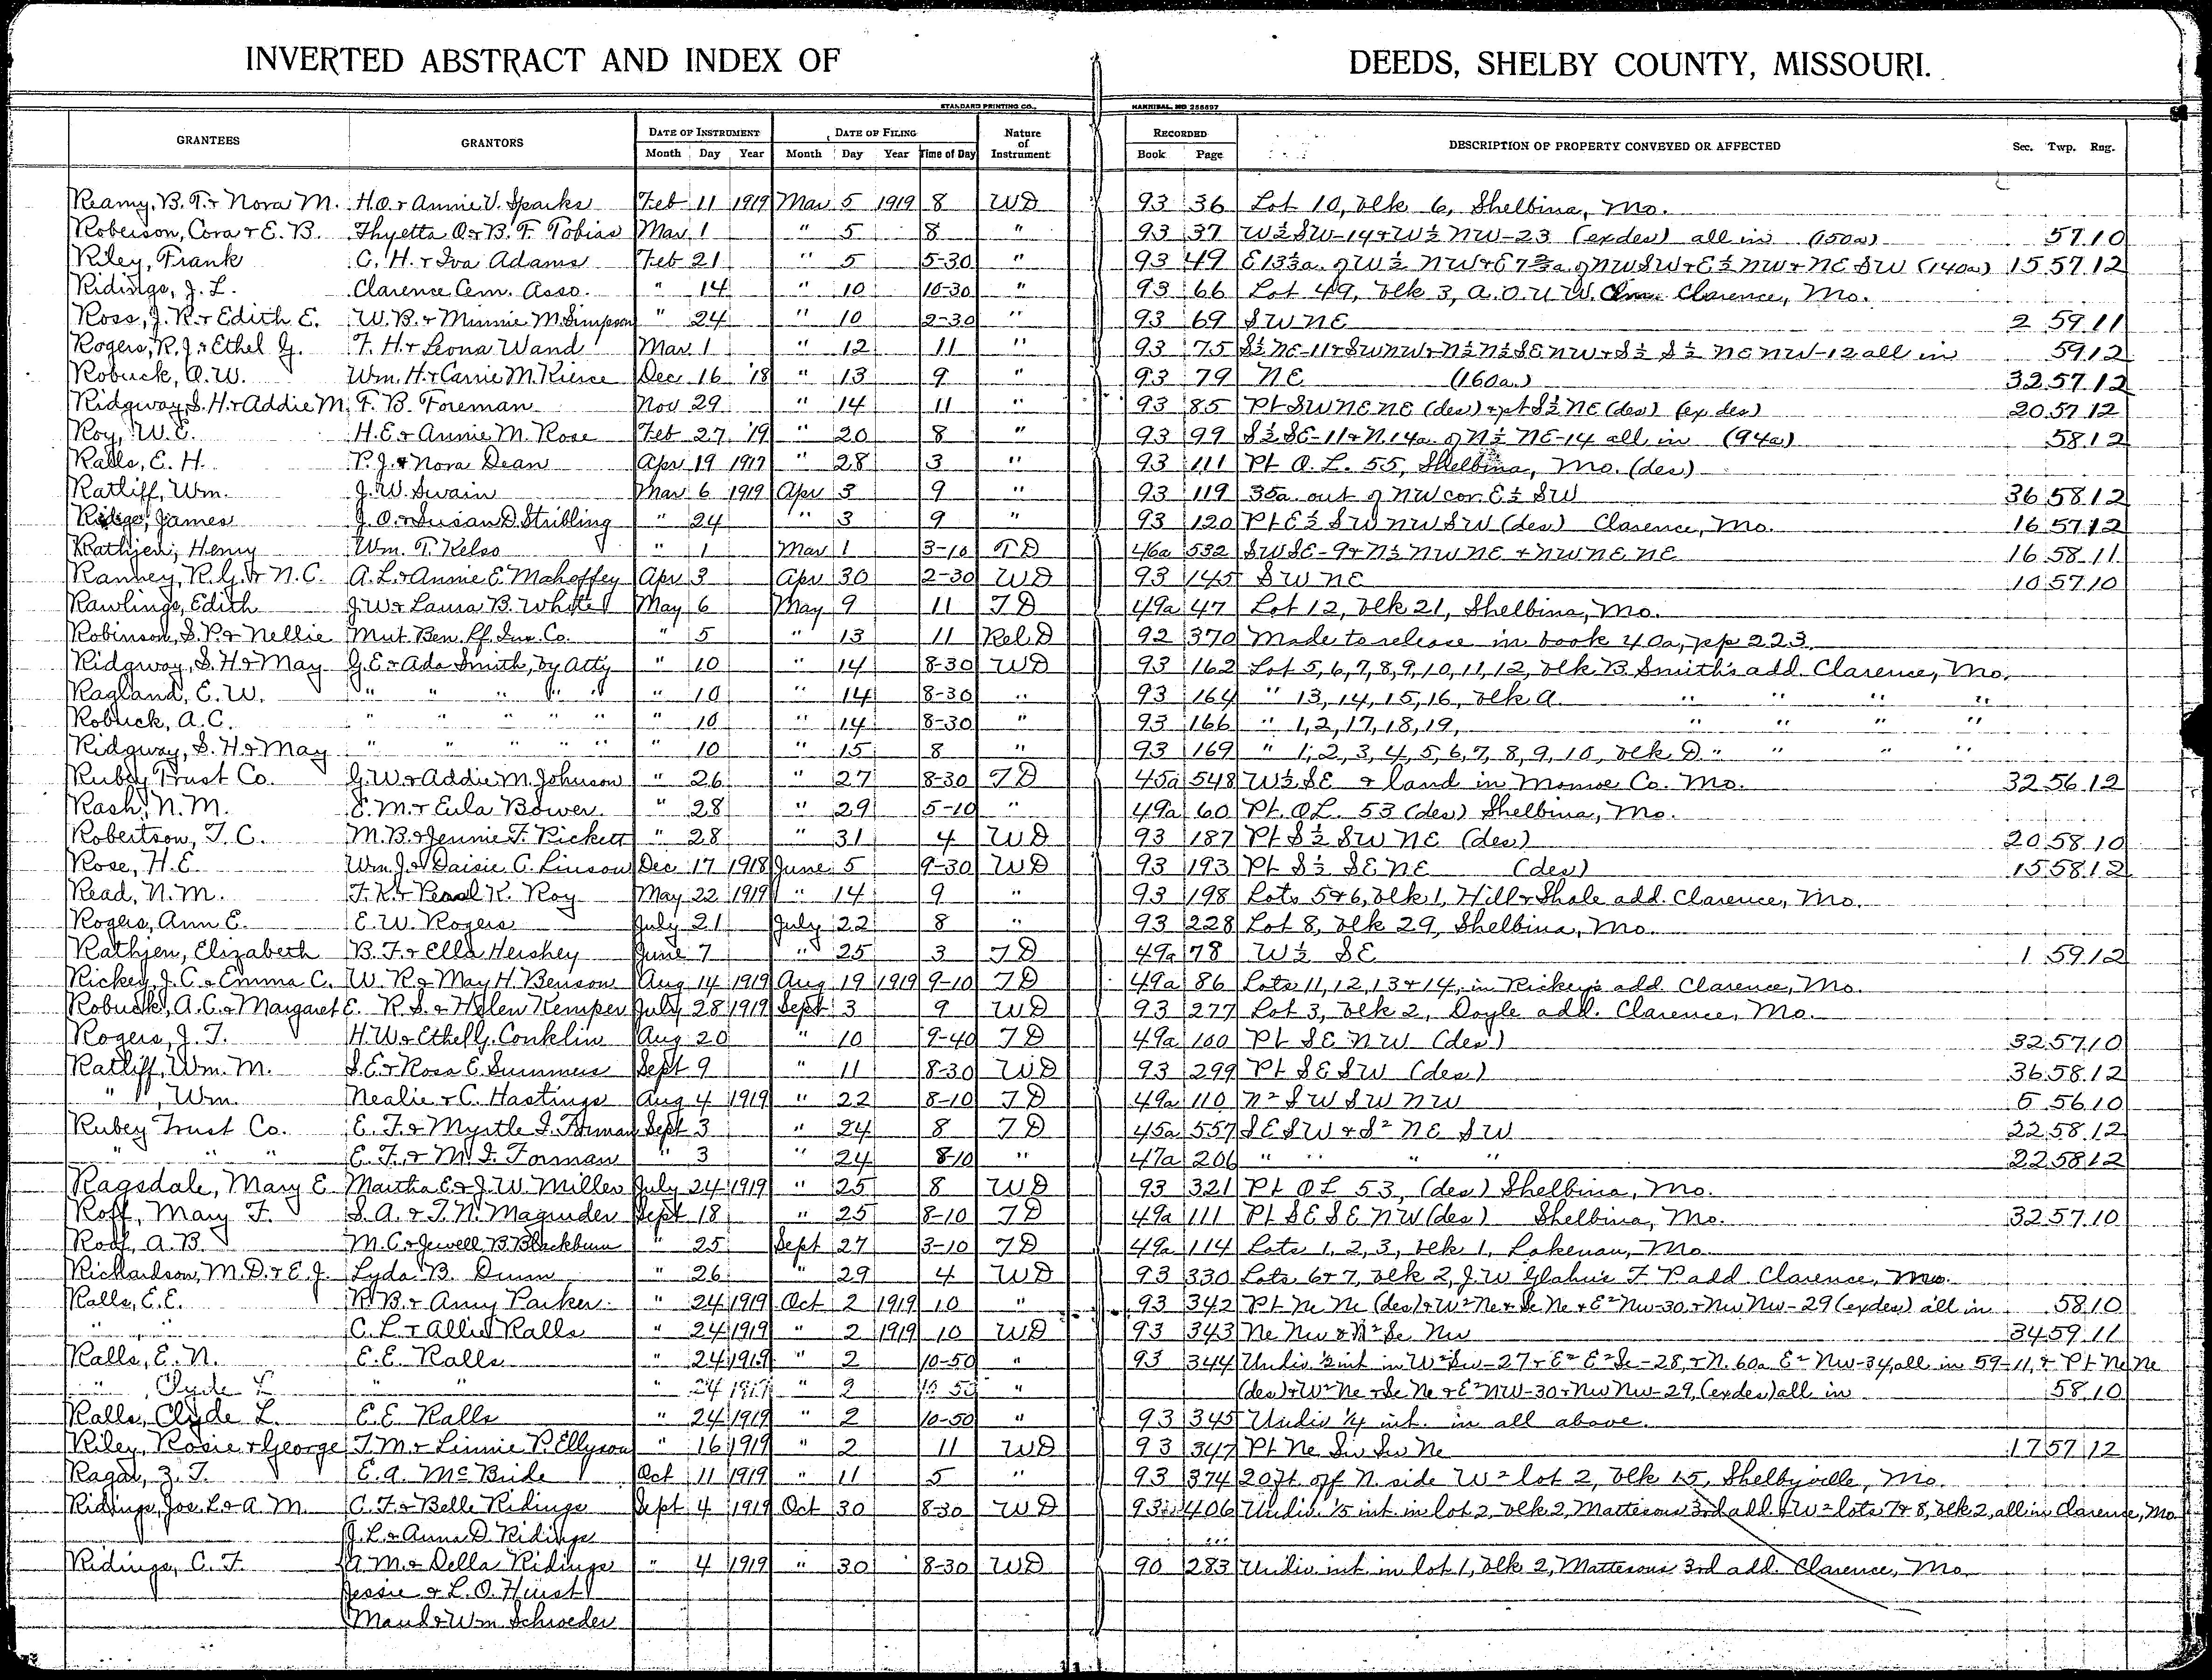 INVERTED ABSTRACT AND INDEX OF DEEDS, SHELBY COUNTY, MISSOURI.
STANDARD PRINTING CO., HANNIBAL, MO 256697
GRANTEES GRANTORS DATE OF INSTRUMENT DATE OF FILING Nature of Instrument RECORDED DESCRIPTION OF PROPERTY CONVEYED OR AFFECTED Sec. Twp. Rng.
Month Day Year Month Day Year Time of Day Book Page
Reamy, B. T. & Nora M. H.O. & Annie V. Sparks Feb 11 1919 Mar 5 1919 8 WD 93 36 Lot 10, blk 6, Shelbina, Mo.
Roberson, Cora & E. B. Thyetta O. & B. F. Tobias Mar 1 " 5 8 " 93 37 W½ SW-14 & W½ NW-23 (exdes) all in (150a) 57 10
Riley, Frank C. H. & Iva Adams Feb 21 " 5 5-30 " 93 49 E 13⅓a. of W½ NW & E 7⅔a. of NWSW & E½ NW & NE SW (140a) 15 57 12
Ridings, J. L. Clarence Cem. Asso. " 14 " 10 10-30 " 93 66 Lot 49, blk 3, A.O.U.W. Cem. Clarence, Mo.
Ross, J. R. & Edith E. W. B. & Minnie M. Simpson " 24 " 10 2-30 " 93 69 SWNE 2 59 11
Rogers, R. J. & Ethel G. F. H. & Leona Wand Mar 1 " 12 11 " 93 75 S½ NE-11 & SWNW & N½ N½ SE NW & S½ S½ NE NW-12 all in 59 12
Robuck, O. W. Wm. H. & Carrie M. Kierce Dec 16 '18 " 13 9 " 93 79 NE (160a.) 32 57 12
Ridgway, S. H. & Addie M. F. B. Foreman Nov 29 " 14 11 " 93 85 Pt SWNENE (des) & pt S½ NE (des) (ex des) 20 57 12
Roy, W. E. H. E. & Annie M. Rose Feb 27 '19 " 20 8 " 93 99 S½ SE-11 & N. 14a. of N½ NE-14 all in (94a) 58 12
Ralls, E. H. P. J. & Nora Dean Apr 19 1917 " 28 3 " 93 111 Pt O. L. 55, Shelbina, Mo. (des)
Ratliff, Wm. J. W. Swain Mar 6 1919 Apr 3 9 " 93 119 35a. out of NW cor. E½ SW 36 58 12
Ridge, James J. O. & Susan D. Stribling " 24 " 3 9 " 93 120 Pt E½ SW NW SW (des) Clarence, Mo. 16 57 12
Rathjen, Henry Wm. T. Kelso " 1 Mar 1 3-10 TD 46a 532 SWSE-9 & N½ NW NE & NWNENE 16 58 11
Ranney, R. G. & N. C. A. L. & Annie E. Mahaffey Apr 3 Apr 30 2-30 WD 93 145 SWNE 10 57 10
Rawlings, Edith J. W. & Laura B. White May 6 May 9 11 TD 49a 47 Lot 12, blk 21, Shelbina, Mo.
Robinson, S. P. & Nellie Mut. Ben. Lf. Ins. Co. " 5 " 13 11 Rel D 92 370 Made to release in book 40a, pp 223.
Ridgway, S. H. & May G. E. & Ada Smith, by Atty " 10 " 14 8-30 WD 93 162 Lot 5, 6, 7, 8, 9, 10, 11, 12, blk B. Smith's add. Clarence, Mo.
Ragland, E. W. " " " " " " 10 " 14 8-30 " 93 164 " 13, 14, 15, 16, blk A. " " " "
Robuck, A. C. " " " " " " 10 " 14 8-30 " 93 166 " 1, 2, 17, 18, 19, " " " "
Ridgway, S. H. & May " " " " " " 10 " 15 8 " 93 169 " 1, 2, 3, 4, 5, 6, 7, 8, 9, 10, blk D. " " " "
Rubey Trust Co. G. W. & Addie M. Johnson " 26 " 27 8-30 TD 45a 548 W½ SE & land in Monroe Co. Mo. 32 56 12
Rash, N. M. E. M. & Eula Bower " 28 " 29 5-10 " 49a 60 Pt. OL. 53 (des) Shelbina, Mo.
Robertson, T. C. M. B. & Jennie F. Pickett " 28 " 31 4 WD 93 187 Pt S½ SW NE (des) 20 58 10
Rose, H. E. Wm. J. & Daisie C. Linson Dec 17 1918 June 5 9-30 WD 93 193 Pt S½ SE NE (des) 15 58 12
Read, N. M. F. K. & Pearl K. Roy May 22 1919 " 14 9 " 93 198 Lots 5 & 6, blk 1, Hill & Shale add. Clarence, Mo.
Rogers, Ann E. E. W. Rogers July 21 July 22 8 " 93 228 Lot 8, blk 29, Shelbina, Mo.
Rathjen, Elizabeth B. F. & Ella Hershey June 7 " 25 3 TD 49a 78 W½ SE 1 59 12
Rickey, J. C. & Emma C. W. R. & May H. Benson Aug 14 1919 Aug 19 1919 9-10 TD 49a 86 Lots 11, 12, 13 & 14, in Rickey's add. Clarence, Mo.
Robuck, A. C. & Margaret E. R. S. & Helen Kemper July 28 1919 Sept 3 9 WD 93 277 Lot 3, blk 2, Doyle add. Clarence, Mo.
Rogers, J. T. H. W. & Ethel G. Conklin Aug 20 " 10 9-40 TD 49a 100 Pt SE NW (des) 32 57 10
Ratliff, Wm. M. S. E. & Rosa E. Summers Sept 9 " 11 8-30 WD 93 299 Pt SE SW (des) 36 58 12
" , Wm. Nealie & C. Hastings Aug 4 1919 " 22 8-10 TD 49a 110 N² SW SW NW 5 56 10
Rubey Trust Co. E. F. & Myrtle I. Forman Sept 3 " 24 8 TD 45a 557 SE SW & S² NE SW 22 58 12
" " " E. F. & M. I. Forman " 3 " 24 8-10 " 47a 206 " " " " 22 58 12
Ragsdale, Mary E. Martha E. & J. W. Miller July 24 1919 " 25 8 WD 93 321 Pt OL 53, (des) Shelbina, Mo.
Roff, Mary F. S. A. & T. N. Magruder Sept 18 " 25 8-10 TD 49a 111 Pt SE SE NW (des) Shelbina, Mo. 32 57 10
Roof, A. B. M. C. & Jewell B. Blackburn " 25 Sept 27 3-10 TD 49a 114 Lots 1, 2, 3, blk 1, Lakenan, Mo.
Richardson, M. D. & E. J. Lyda B. Dunn " 26 " 29 4 WD 93 330 Lots 6 & 7, blk 2, J. W. Glahn's F. P. add. Clarence, Mo.
Ralls, E. E. R. B. & Amy Parker " 24 1919 Oct 2 1919 10 " 93 342 Pt Ne Ne (des) & W² Ne & Se Ne & E² Nw-30 & Nw Nw-29 (exdes) all in 58 10
" " C. L. & Allie Ralls " 24 1919 " 2 1919 10 WD 93 343 Ne Nw & N² Se Nw 34 59 11
Ralls, E. N. E. E. Ralls " 24 1919 " 2 10-50 " 93 344 Undiv ½ int in W² Sw-27 & E² E² Se-28, & N. 60a E² Nw-34, all in 59-11, & Pt Ne Ne
" , Clyde L. " " " 24 1919 " 2 10 50 " (des) & W² Ne & Se Ne & E² NW-30 & Nw Nw-29, (exdes) all in 58 10
Ralls, Clyde L. E. E. Ralls " 24 1919 " 2 10-50 " 93 345 Undiv ¼ int. in all above.
Riley, Rosie & George T. M. & Linnie P. Ellyson " 16 1919 " 2 11 WD 93 347 Pt Ne Sw Sw Ne 17 57 12
Ragar, Z. T. E. A. McBride Oct 11 1919 " 11 5 " 93 374 20 ft. off N. side W² lot 2, blk 15, Shelbyville, Mo.
Ridings, Jos. L. & A. M. C. F. & Belle Ridings Sept 4 1919 Oct 30 8-30 WD 93 406 Undiv. 1/5 int. in lot 2, blk 2, Mattesons 3rd add. & W² lots 7 & 8, blk 2, all in Clarence, Mo.
J. L. & Anna D. Ridings
Ridings, C. F. A. M. & Della Ridings " 4 1919 " 30 8-30 WD 90 283 Undiv. int. in lot 1, blk 2, Mattesons 3rd add. Clarence, Mo.
Jessie & L. O. Hurst
Maud & Wm. Schroeder